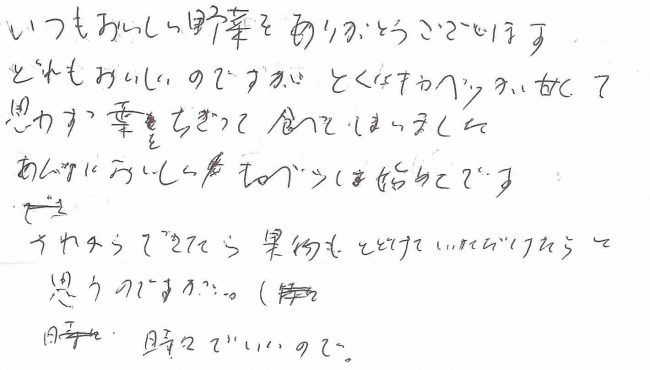 いつもおいしい野菜をありがとうございます
どれもおいしいのですが とくにキャベツが甘くて
思わず葉をちぎって食べてしまいました
あんなにおいしいキャベツは始めてです
それからできたら果物もとどけていただけたらと
思うのですが…。(
時々でいいので。